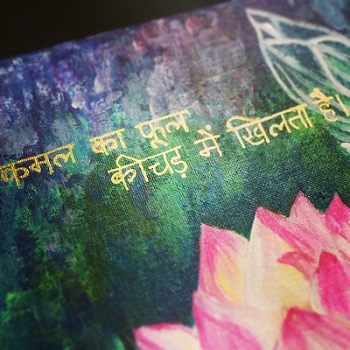 कमल का फूल
कीचड़ में खिलता है।